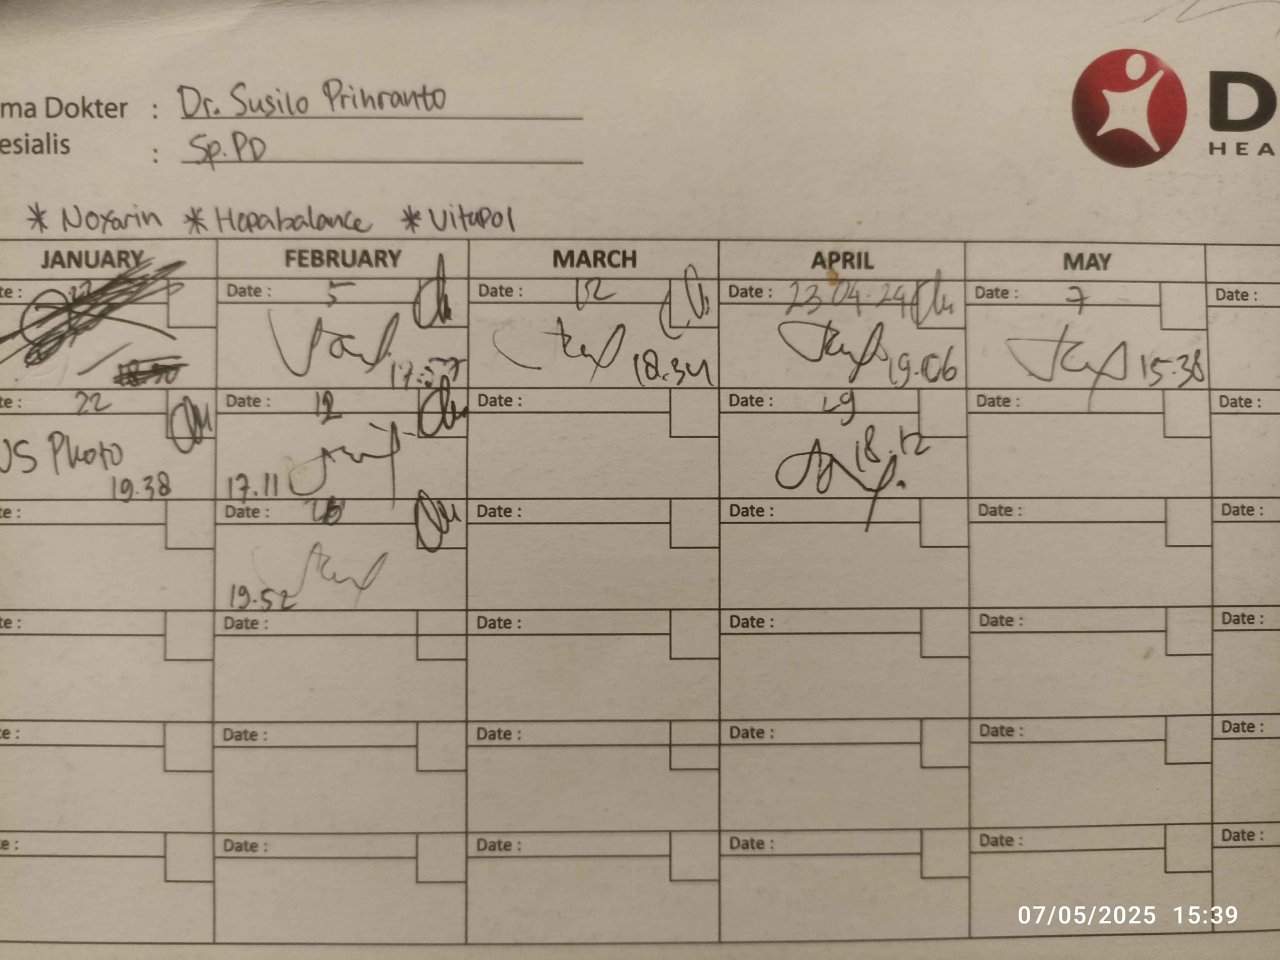 ma Dokter : Dr. Susilo Prihranto
esialis : Sp.PD
D
HEA
* Noxarin * Hepabalance * Vitapol
JANUARY FEBRUARY MARCH APRIL MAY
te : Date : 5 Date : 12 Date : 23-04-24 Date : 7 Date :
17:57 18.34 19.06 15.38
te : 22 Date : 12 Date : Date : 29 Date : Date :
US Photo 18.12
19.38 17.11
te : Date : Date : Date : Date : Date :
19.52
te : Date : Date : Date : Date : Date :
te : Date : Date : Date : Date : Date :
te : Date : Date : Date : Date : Date :
07/05/2025 15:39